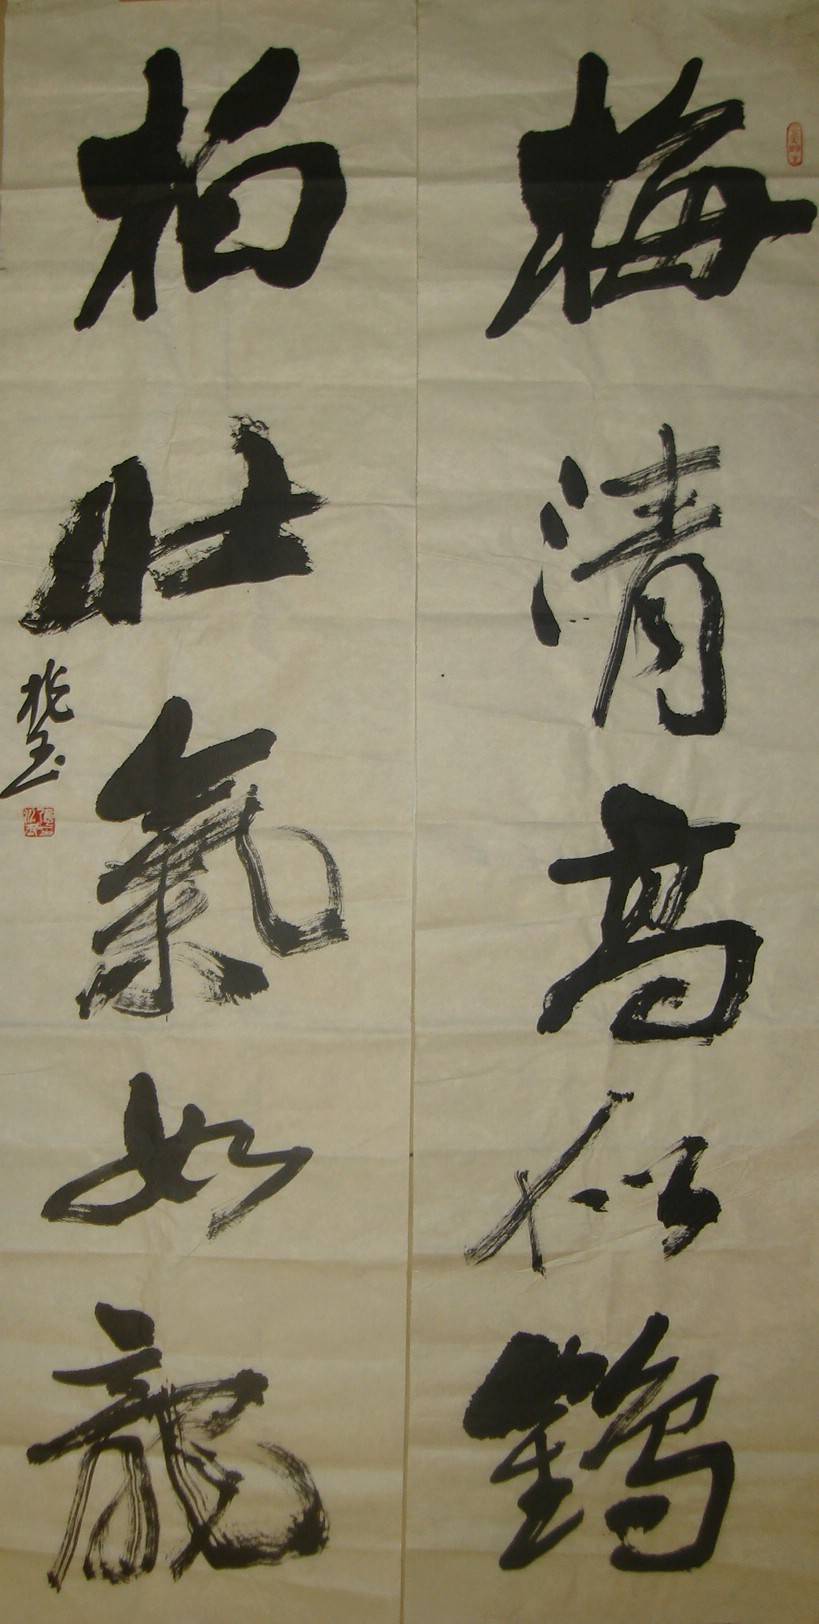 梅清高似鶴
柏壯氣如龍